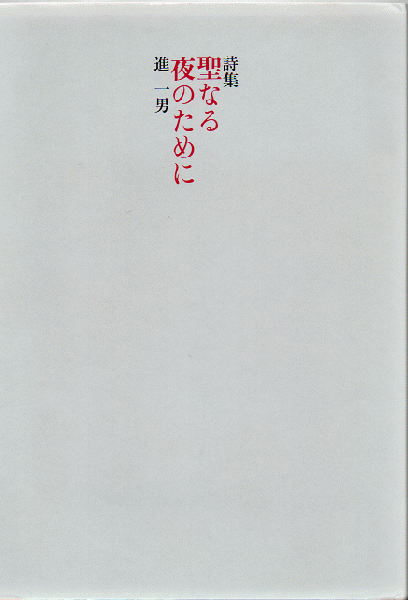 詩集
聖なる
夜のために
進一男